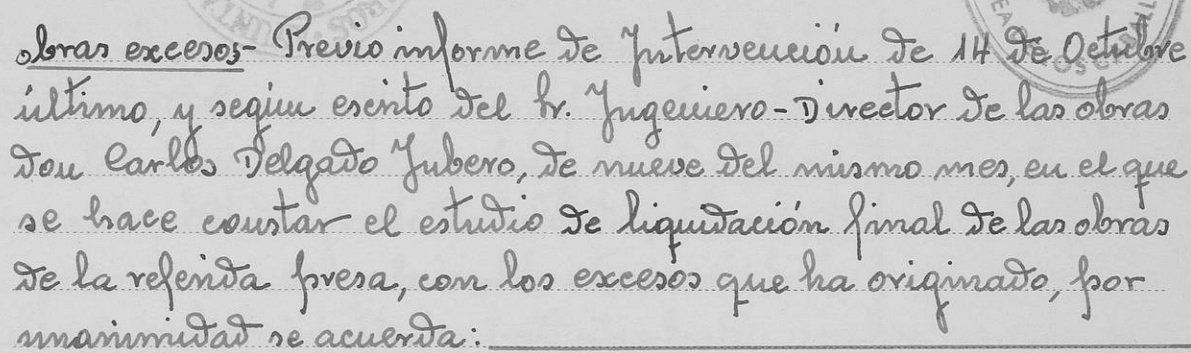 obras excesos- Previo informe de Intervención de 14 de Octubre
último, y según escrito del Sr. Ingeniero-Director de las obras
don Carlos Delgado Jubero, de nueve del mismo mes, en el que
se hace constar el estudio de liquidación final de las obras
de la referida presa, con los excesos que ha originado, por
unanimidad se acuerda: